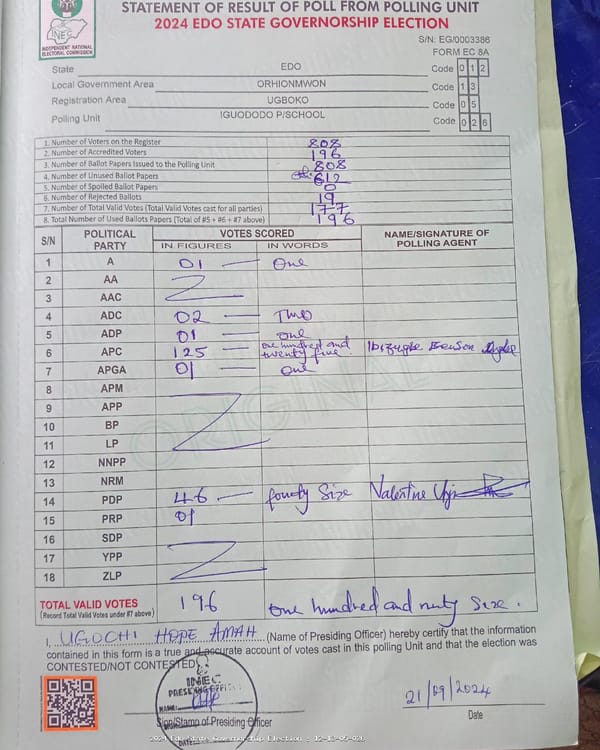 STATEMENT OF RESULT OF POLL FROM POLLING UNIT
2024 EDO STATE GOVERNORSHIP ELECTION
INEC
INDEPENDENT NATIONAL
ELECTORAL COMMISSION
S/N: EG/0003386
FORM EC 8A
State EDO Code 0 1 2
Local Government Area ORHIONMWON Code 1 3
Registration Area UGBOKO Code 0 5
Polling Unit IGUODODO P/SCHOOL Code 0 2 6
1. Number of Voters on the Register 808
2. Number of Accredited Voters 196
3. Number of Ballot Papers Issued to the Polling Unit 808
4. Number of Unused Ballot Papers 612
5. Number of Spoiled Ballot Papers 0
6. Number of Rejected Ballots 19
7. Number of Total Valid Votes (Total Valid Votes cast for all parties) 177
8. Total Number of Used Ballots Papers (Total of #5 + #6 + #7 above) 196
S/N POLITICAL PARTY VOTES SCORED NAME/SIGNATURE OF POLLING AGENT
IN FIGURES IN WORDS
1 A 01 — One
2 AA
3 AAC
4 ADC 02 — Two
5 ADP 01 — one
6 APC 125 — one hundred and twenty five Benson
7 APGA 01 — one
8 APM
9 APP
10 BP
11 LP
12 NNPP
13 NRM
14 PDP 46 — fourty Size Valentine
15 PRP 01
16 SDP
17 YPP
18 ZLP
ORIGINAL
TOTAL VALID VOTES 196 one hundred and ninty Size.
(Record Total Valid Votes under #7 above)
I, UGOCHI HOPE AMAH (Name of Presiding Officer) hereby certify that the information
contained in this form is a true and accurate account of votes cast in this polling Unit and that the election was
CONTESTED/NOT CONTESTED
INEC
PRESIDING OFFICER
NAME:
DATE:
21/09/2024
Sign/Stamp of Presiding Officer
Date
2024 Edo State Governorship Election : 12-13-05-026